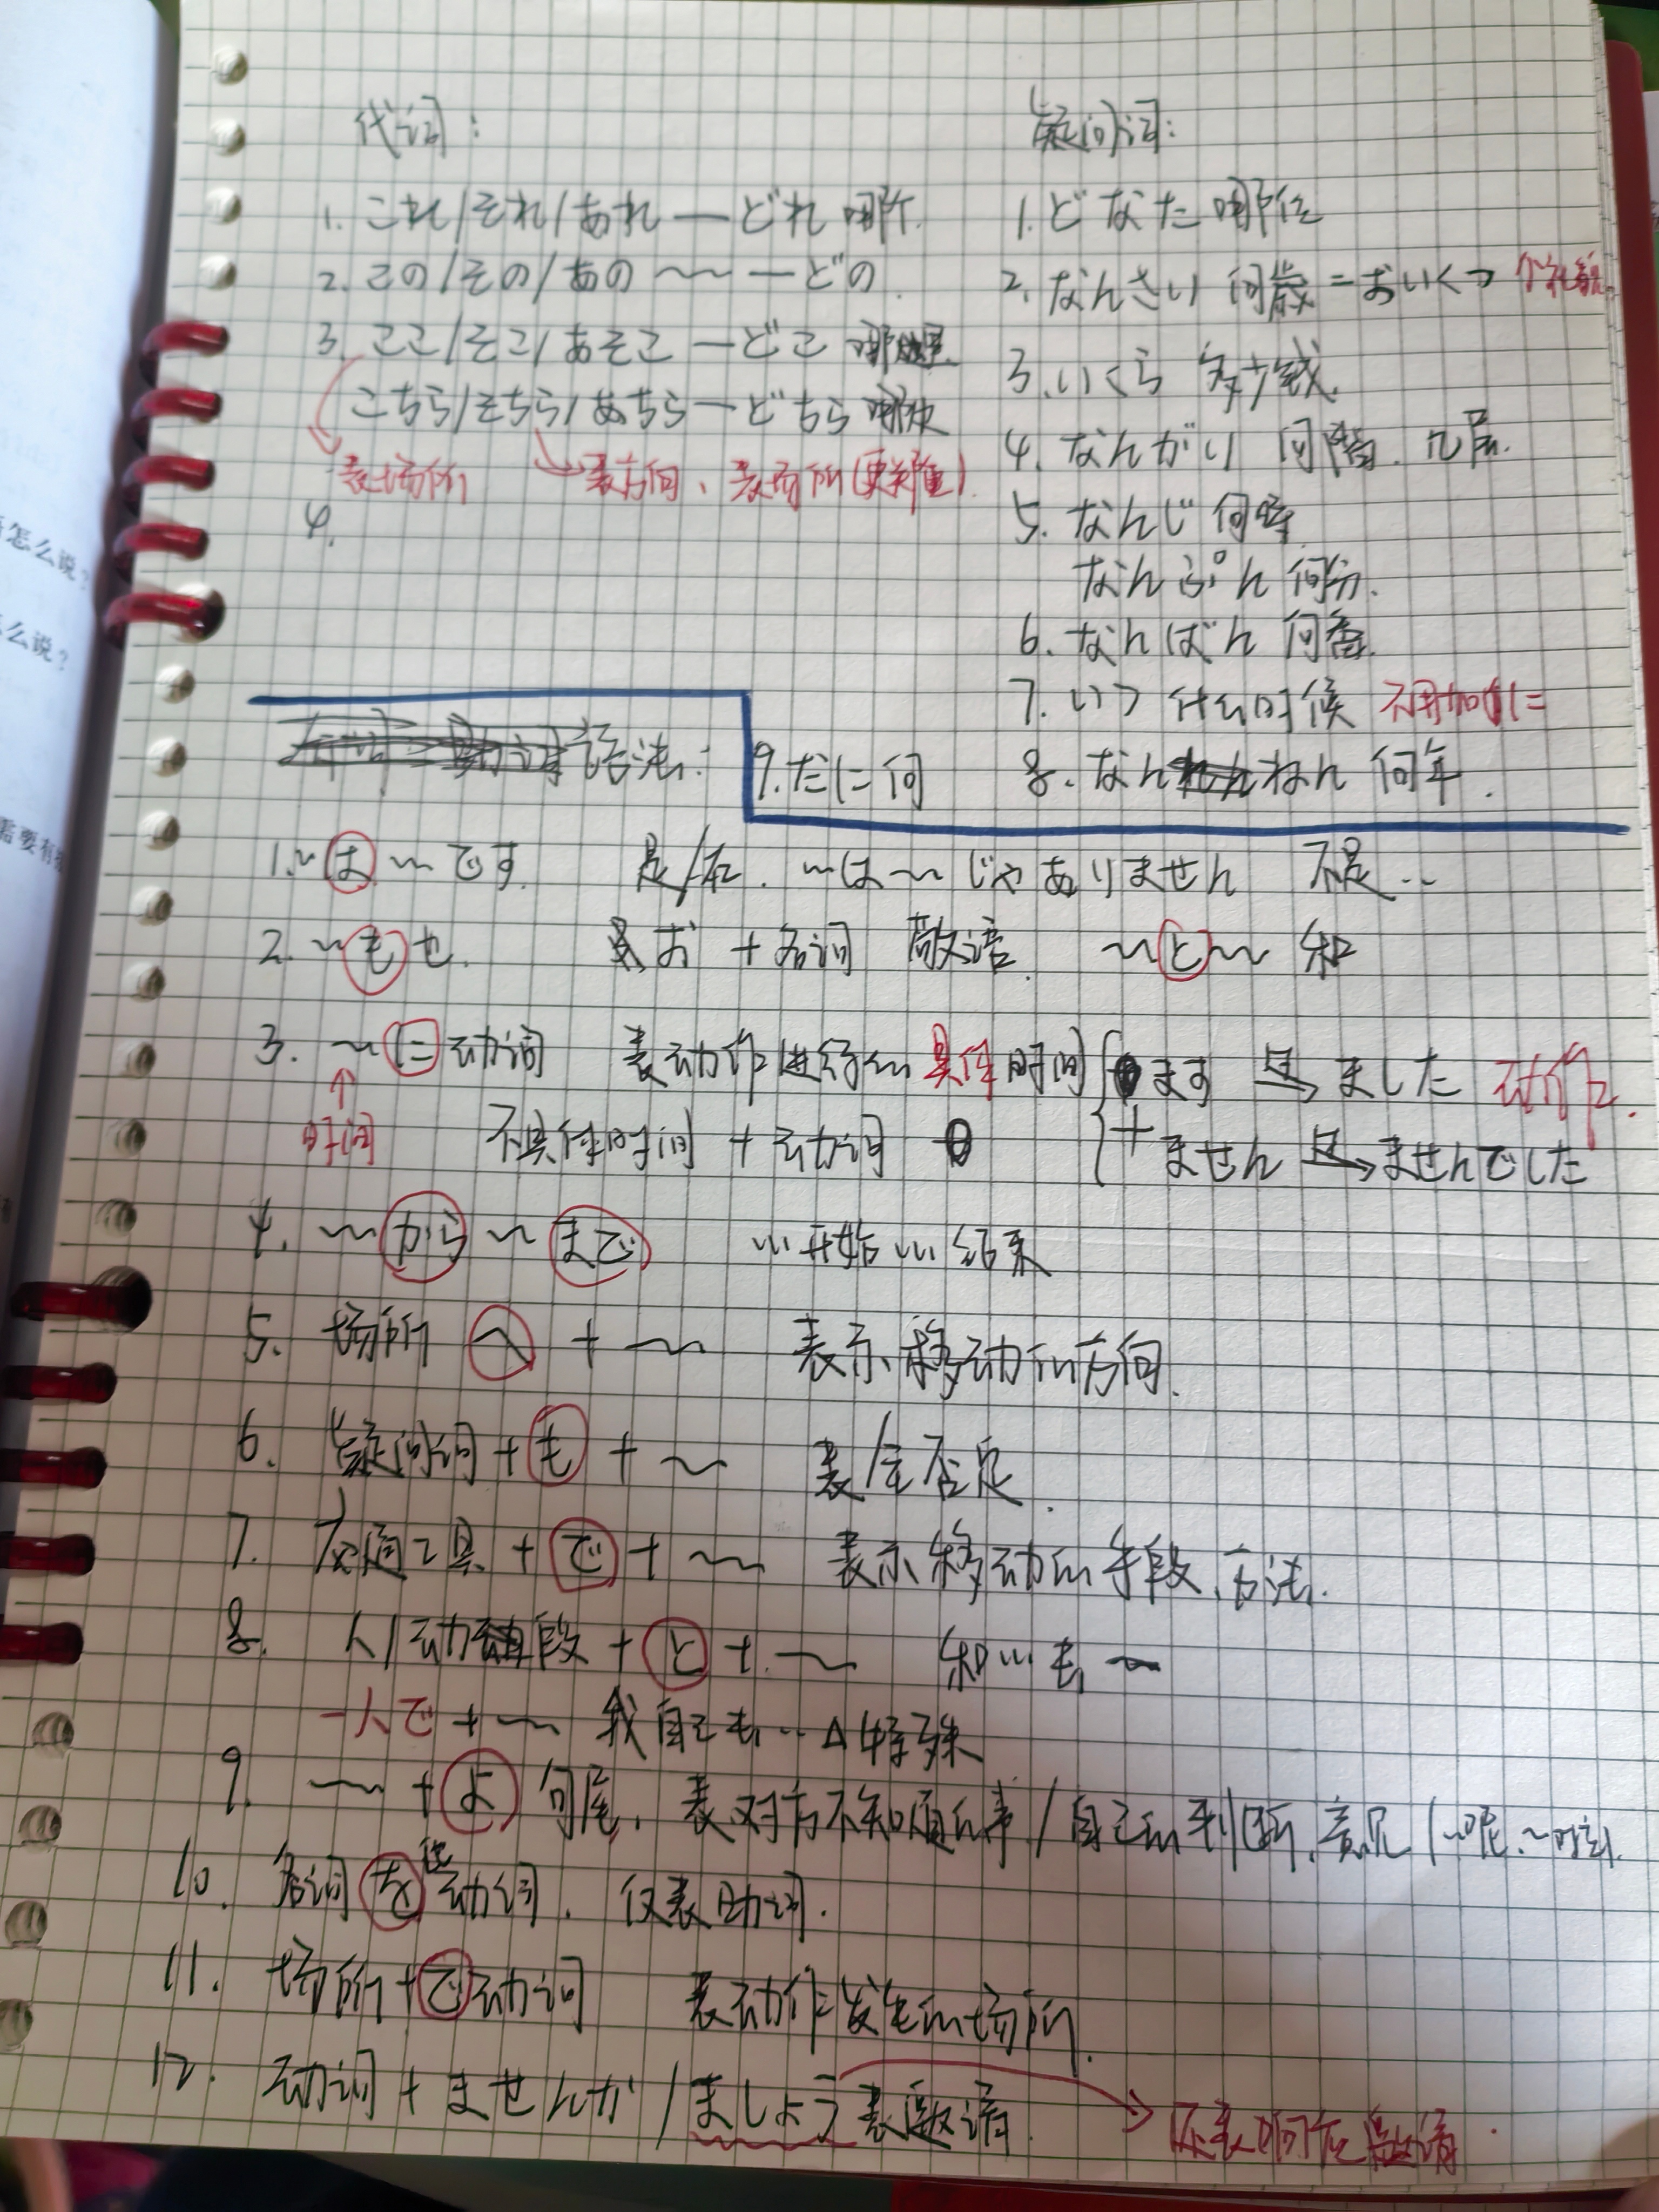 代词：
1. これ/それ/あれ — どれ 哪个.
2. この/その/あの 〜 — どの.
3. ここ/そこ/あそこ — どこ 哪里.
こちら/そちら/あちら — どちら
表场所 表方向、表场所(更郑重).
4.
疑问词：
1. どなた 哪位
2. なんさい 何歳 = おいくつ 
3. いくら 多少钱.
4. なんがい 何階. 几层.
5. なんじ 何時
なんぷん 何分.
6. なんばん 何番.
7. いつ 什么时候 不用加に
8. なんねん 何年.
9. なに 何
语法：
1. 〜は〜です. 是/在. 〜は〜じゃありません 不是…
2. 〜も 也. お + 名词 敬语. 〜と〜 和
3. 〜に动词 表动作进行的具体时间 ます 过→ ました 动作.
时间 不具体时间 + 动词 + ません 过→ ませんでした
4. 〜から〜まで …开始…结束
5. 场所へ + 〜 表示移动的方向.
6. 疑问词 + も + 〜 表全否定.
7. 交通工具 + で + 〜 表示移动的手段、方法.
8. 人/动 + と + 〜 和…去〜
一人で + 〜 我自己去… △特殊
9. 〜 + よ 句尾, 表对方不知道的事/自己的判断、意见
10. 名词を他动词. 仅表助词.
11. 场所+で动词 表动作发生的场所.
12. 动词 + ませんか/ましょう 表邀请. 还表响应邀请.